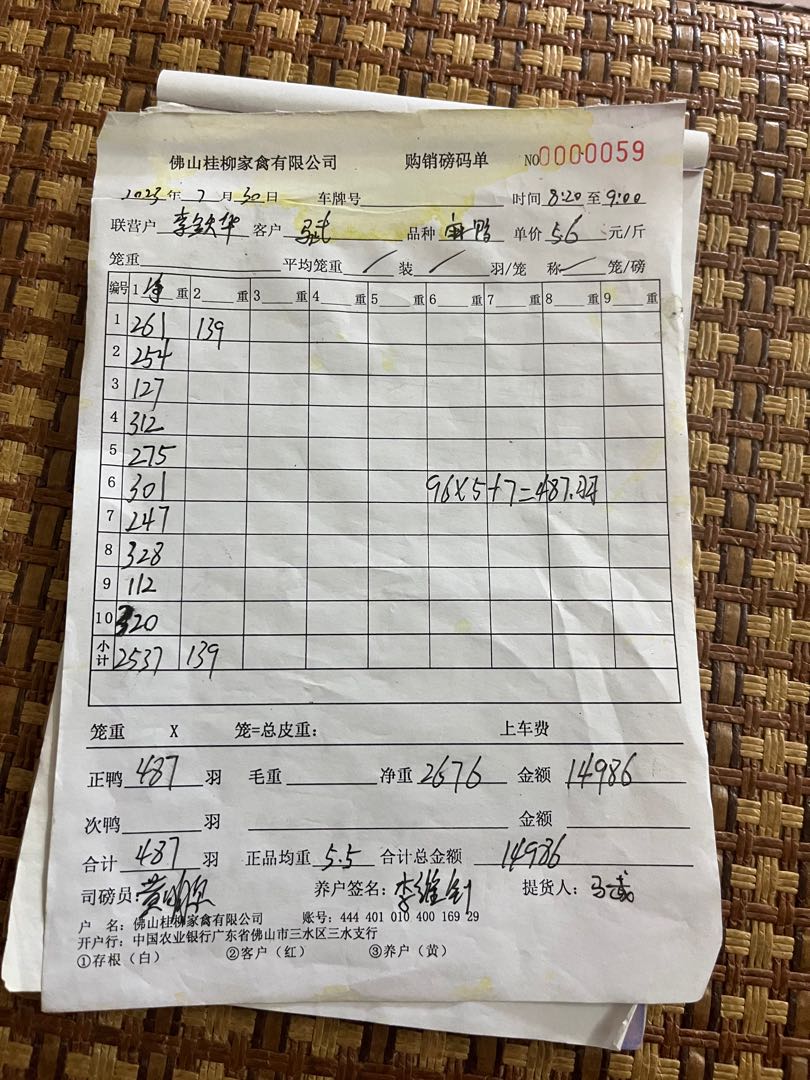 佛山桂柳家禽有限公司 购销磅码单 NO0000059
2023年7月30日 车牌号 时间 8:20 至 9:00
联营户 李铁华 客户 马武 品种 麻鸭 单价 5.6 元/斤
笼重 平均笼重 / 装 / 羽/笼 称 / 笼/磅
编号 1 净 重 2 重 3 重 4 重 5 重 6 重 7 重 8 重 9 重
1 261 139
2 254
3 127
4 312
5 275
6 301 96×5+7=487.羽
7 247
8 328
9 112
10 320
小计 2537 139
笼重 X 笼=总皮重: 上车费
正鸭 487 羽 毛重 净重 2676 金额 14986
次鸭 羽 金额
合计 487 羽 正品均重 5.5 合计总金额 14986
司磅员: 养户签名: 提货人: 马武
户 名: 佛山桂柳家禽有限公司 账号: 444 401 010 400 169 29
开户行: 中国农业银行广东省佛山市三水区三水支行
①存根(白) ②客户(红) ③养户(黄)